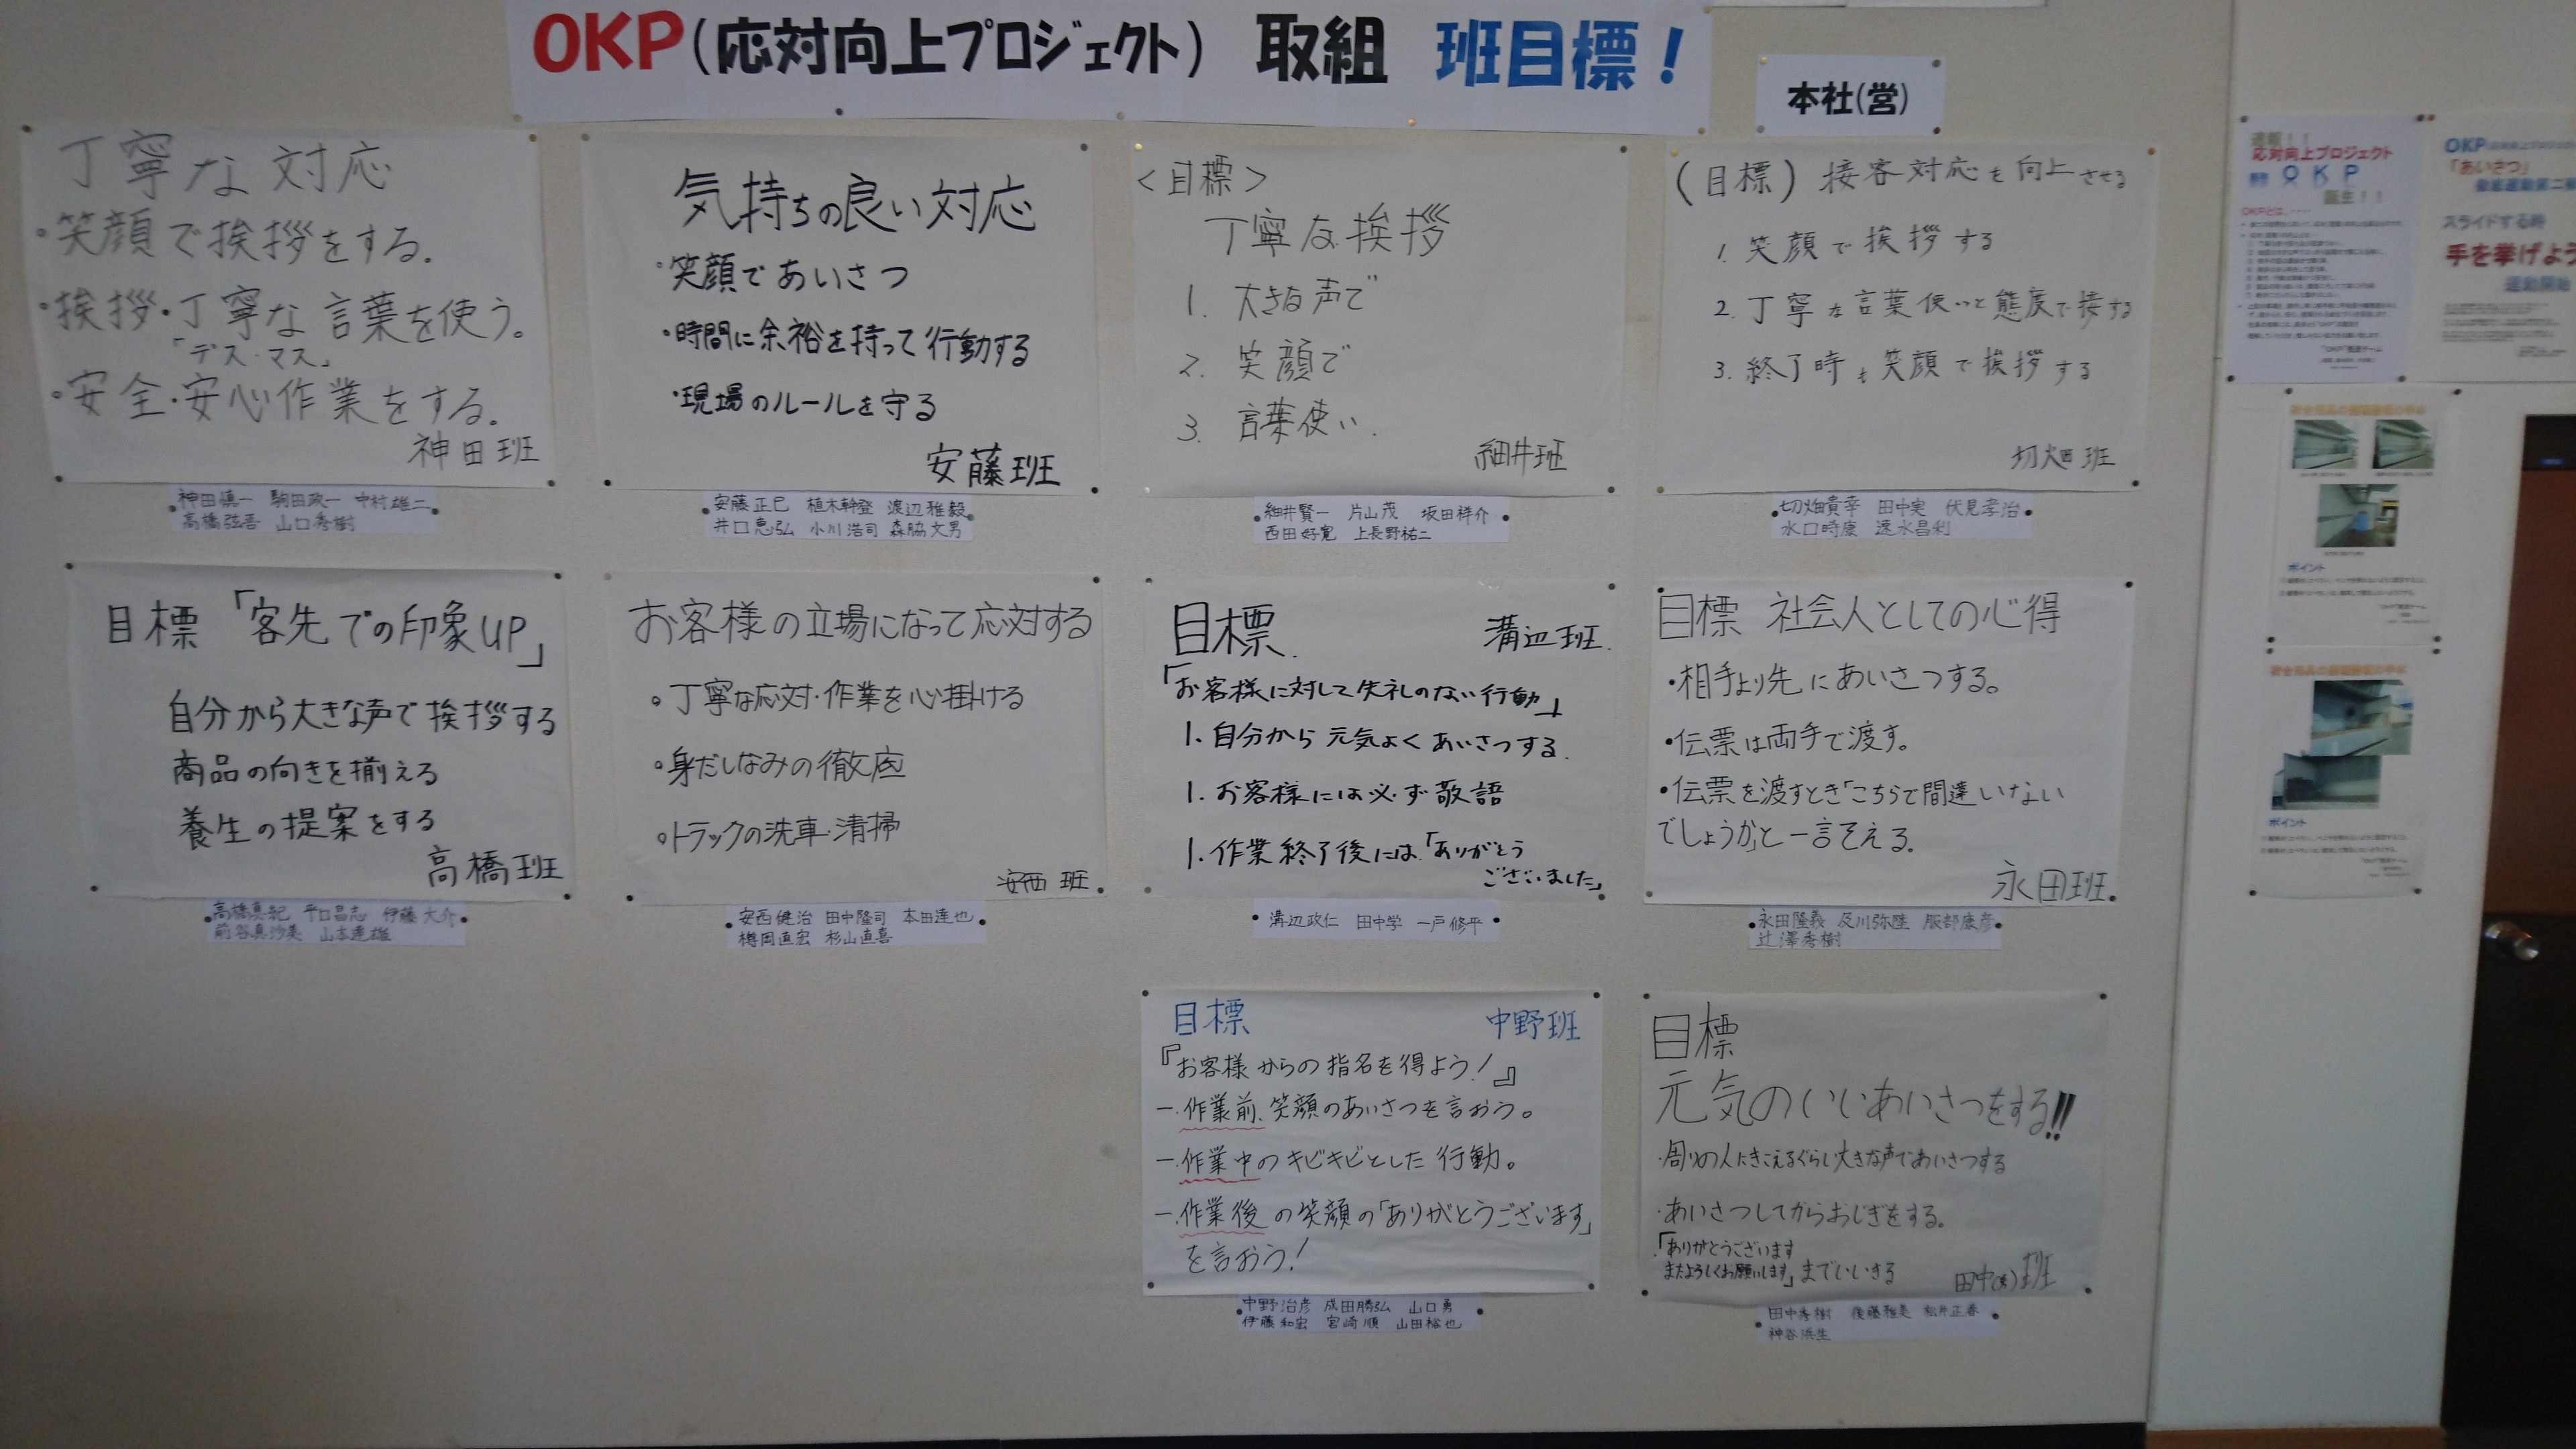 OKP(応対向上プロジェクト) 取組 班目標!
本社(営)
丁寧な対応
・笑顔で挨拶をする.
・挨拶・丁寧な言葉を使う。
「デス・マス」
・安全・安心作業をする.
神田班
神田慎一 駒田政一 中村雄二
高橋弦吾 山口秀樹
気持ちの良い対応
・笑顔であいさつ
・時間に余裕を持って行動する
・現場のルールを守る
安藤班
安藤正巳 植木幹登 渡辺雅毅
井口恵弘 小川浩司 森脇文男
<目標>
丁寧な挨拶
1. 大きな声で
2. 笑顔で
3. 言葉使い.
細井班
細井賢一 片山茂 坂田祥介
西田好寛 上長野祐二
(目標) 接客対応を向上させる
1. 笑顔で挨拶する
2. 丁寧な言葉使いと態度で接する
3. 終了時も笑顔で挨拶する
切畑班
切畑貴幸 田中実 伏見孝治
水口時康 速水昌利
目標「客先での印象UP」
自分から大きな声で挨拶する
商品の向きを揃える
養生の提案をする
高橋班
高橋真紀 平口昌志 伊藤大介
前谷真沙美 山本達雄
お客様の立場になって応対する
。丁寧な応対・作業を心掛ける
。身だしなみの徹底
。トラックの洗車・清掃
安西班
安西健治 田中隆司 本田達也
樽岡直宏 杉山直喜
目標. 溝辺班.
「お客様に対して失礼のない行動」
1. 自分から元気よくあいさつする.
1. お客様には必ず敬語
1. 作業終了後には「ありがとう
ございました」
溝辺政仁 田中学 一戸修平
目標 社会人としての心得
・相手より先にあいさつする。
・伝票は両手で渡す。
・伝票を渡すとき「こちらで間違いない
でしょうか」と一言そえる。
永田班.
永田隆義 及川弥陸 服部康彦
辻澤秀樹
目標 中野班
『お客様からの指名を得よう!』
一.作業前.笑顔のあいさつを言おう。
一.作業中のキビキビとした行動。
一.作業後の笑顔の「ありがとうございます」
を言おう!
中野治彦 成田勝弘 山口勇
伊藤和宏 宮崎順 山田裕也
目標
元気のいいあいさつをする!!
・周りの人にきこえるぐらい大きな声であいさつする
・あいさつしてからおじぎをする。
・「ありがとうございます
またよろしくお願いします」までいいきる
田中(秀)班
田中秀樹 後藤雅美 松井正春
神谷浜生
速報!!
応対向上プロジェクト
OKP
誕生!!
OKPとは、‥‥
OKP
「あいさつ」
スライドする時
手を挙げよう
運動開始
ポイント
ポイント